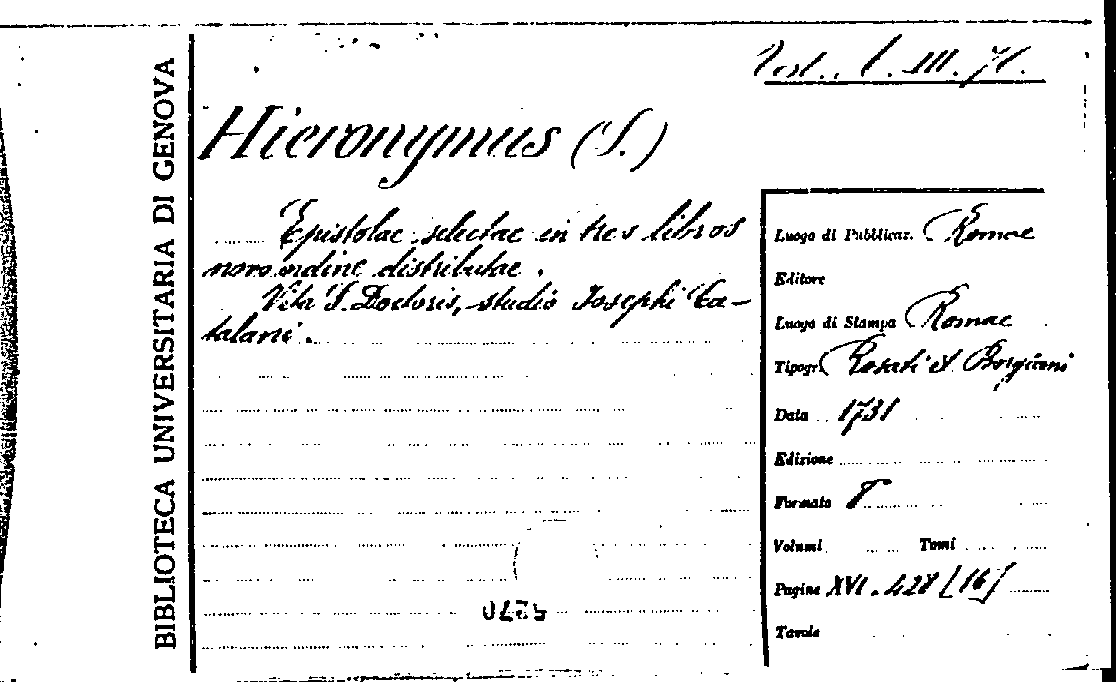 BIBLIOTECA UNIVERSITARIA DI GENOVA
Hieronymus (S.)
Epistolae selectae in tres libros
novo ordine distributae.
Vita S. Doctoris, studio Josephi Ca-
talani.
Luogo di Pubblicaz. Romae
Editore
Luogo di Stampa Romae
Tipogr. Rosati et Borgiani
Data 1731
Edizione
Formato
Volumi Tomi
Pagine XVI. 428 [16]
Tavole